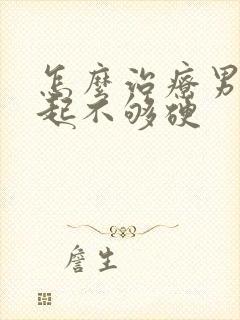 怎麼治療男
起不够硬
詹生